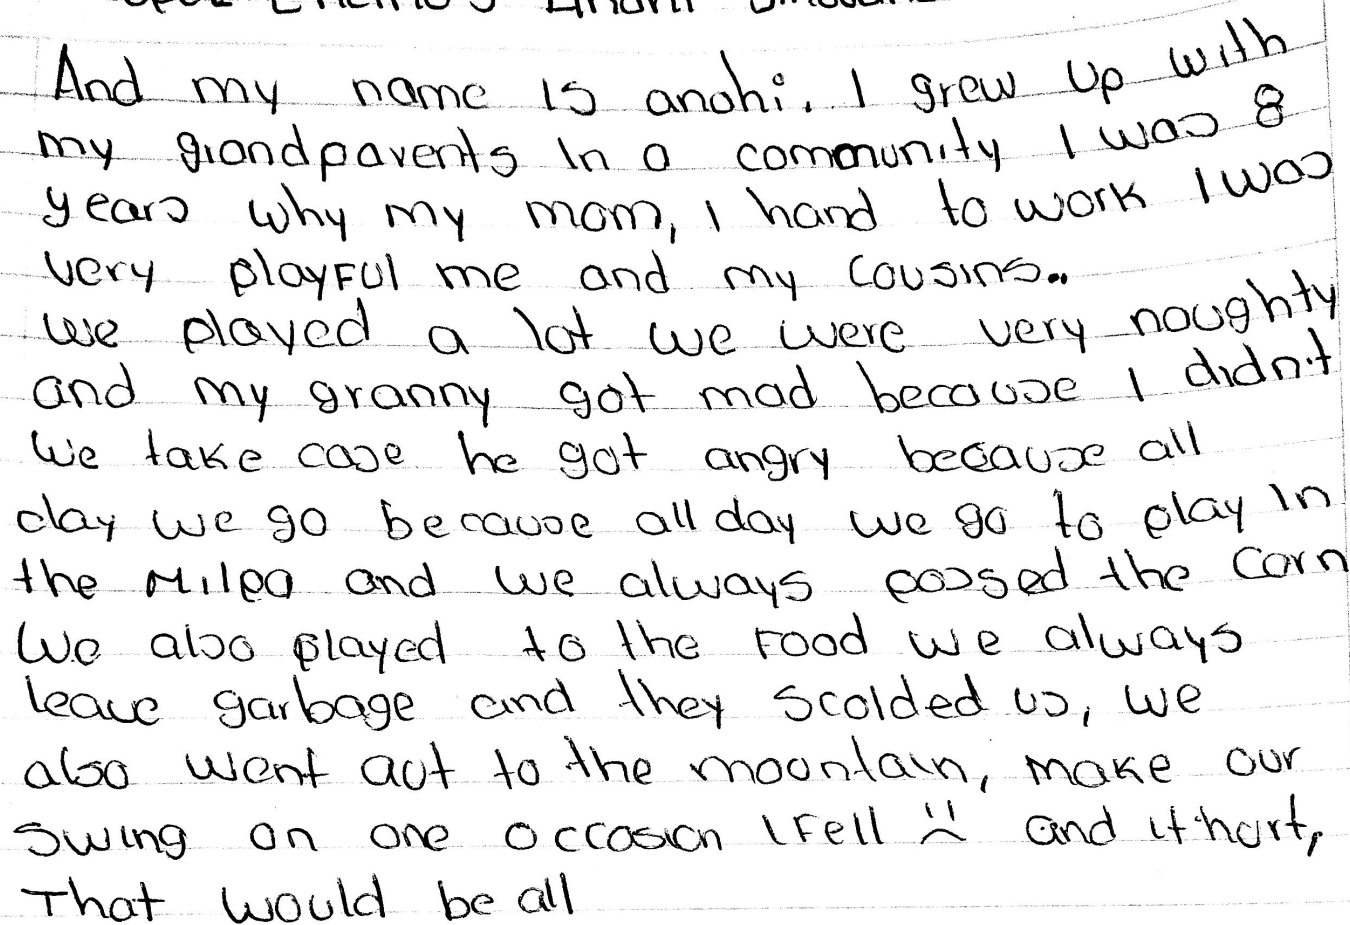 And my name is anohi. I grew up with
my grandpavents In a community I was 8
years why my mom, I hand to work I was
very playful me and my cousins..
we played a lot we were very noughty
and my granny got mad because I didn't
We take case he got angry because all
day we go because all day we go to play in
the Milpa and we always possed the Corn
We also played to the Food we always
leave garbage and they scolded us, we
also went out to the mountain, make our
swing on one occasion I Fell :( and it hurt,
That would be all